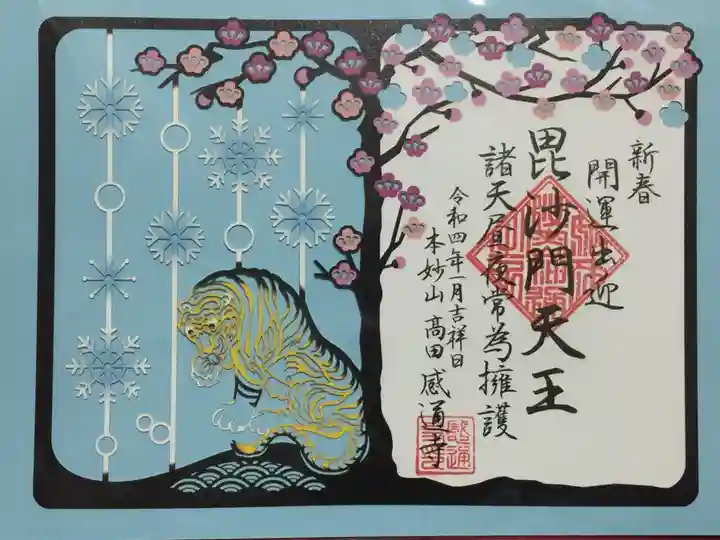 新春
開運出迎
毘沙門天王
諸天昼夜常為擁護
令和四年一月吉祥日
本妙山 高田感通寺